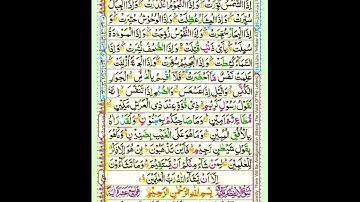 اِذَا الشَّمْسُ كُوِّرَتْ وَاِذَا النُّجُوْمُ انْكَدَرَتْ وَاِذَا الْجِبَالُ
سُيِّرَتْ وَاِذَا الْعِشَارُ عُطِّلَتْ وَاِذَا الْوُحُوْشُ حُشِرَتْ
وَاِذَا الْبِحَارُ سُجِّرَتْ وَاِذَا النُّفُوْسُ زُوِّجَتْ وَاِذَا الْمَوْءٗدَةُ
سُئِلَتْ بِاَيِّ ذَنْۢبٍ قُتِلَتْ وَاِذَا الصُّحُفُ نُشِرَتْ وَاِذَا
السَّمَآءُ كُشِطَتْ وَاِذَا الْجَحِيْمُ سُعِّرَتْ وَاِذَا الْجَنَّةُ اُزْلِفَتْ
عَلِمَتْ نَفْسٌ مَّآ اَحْضَرَتْ فَلَآ اُقْسِمُ بِالْخُنَّسِ الْجَوَارِ
الْكُنَّسِ وَالَّيْلِ اِذَا عَسْعَسَ وَالصُّبْحِ اِذَا تَنَفَّسَ اِنَّهٗ
لَقَوْلُ رَسُوْلٍ كَرِيْمٍ ذِيْ قُوَّةٍ عِنْدَ ذِي الْعَرْشِ مَكِيْنٍ
مُّطَاعٍ ثَمَّ اَمِيْنٍ وَمَا صَاحِبُكُمْ بِمَجْنُوْنٍ وَلَقَدْ رَاٰهُ
بِالْاُفُقِ الْمُبِيْنِ وَمَا هُوَ عَلَى الْغَيْبِ بِضَنِيْنٍ وَمَا هُوَ
بِقَوْلِ شَيْطٰنٍ رَّجِيْمٍ فَاَيْنَ تَذْهَبُوْنَ اِنْ هُوَ اِلَّا ذِكْرٌ
لِّلْعٰلَمِيْنَ لِمَنْ شَآءَ مِنْكُمْ اَنْ يَّسْتَقِيْمَ وَمَا تَشَآءُوْنَ
اِلَّآ اَنْ يَّشَآءَ اللّٰهُ رَبُّ الْعٰلَمِيْنَ
بِسْمِ اللّٰهِ الرَّحْمٰنِ الرَّحِيْمِ